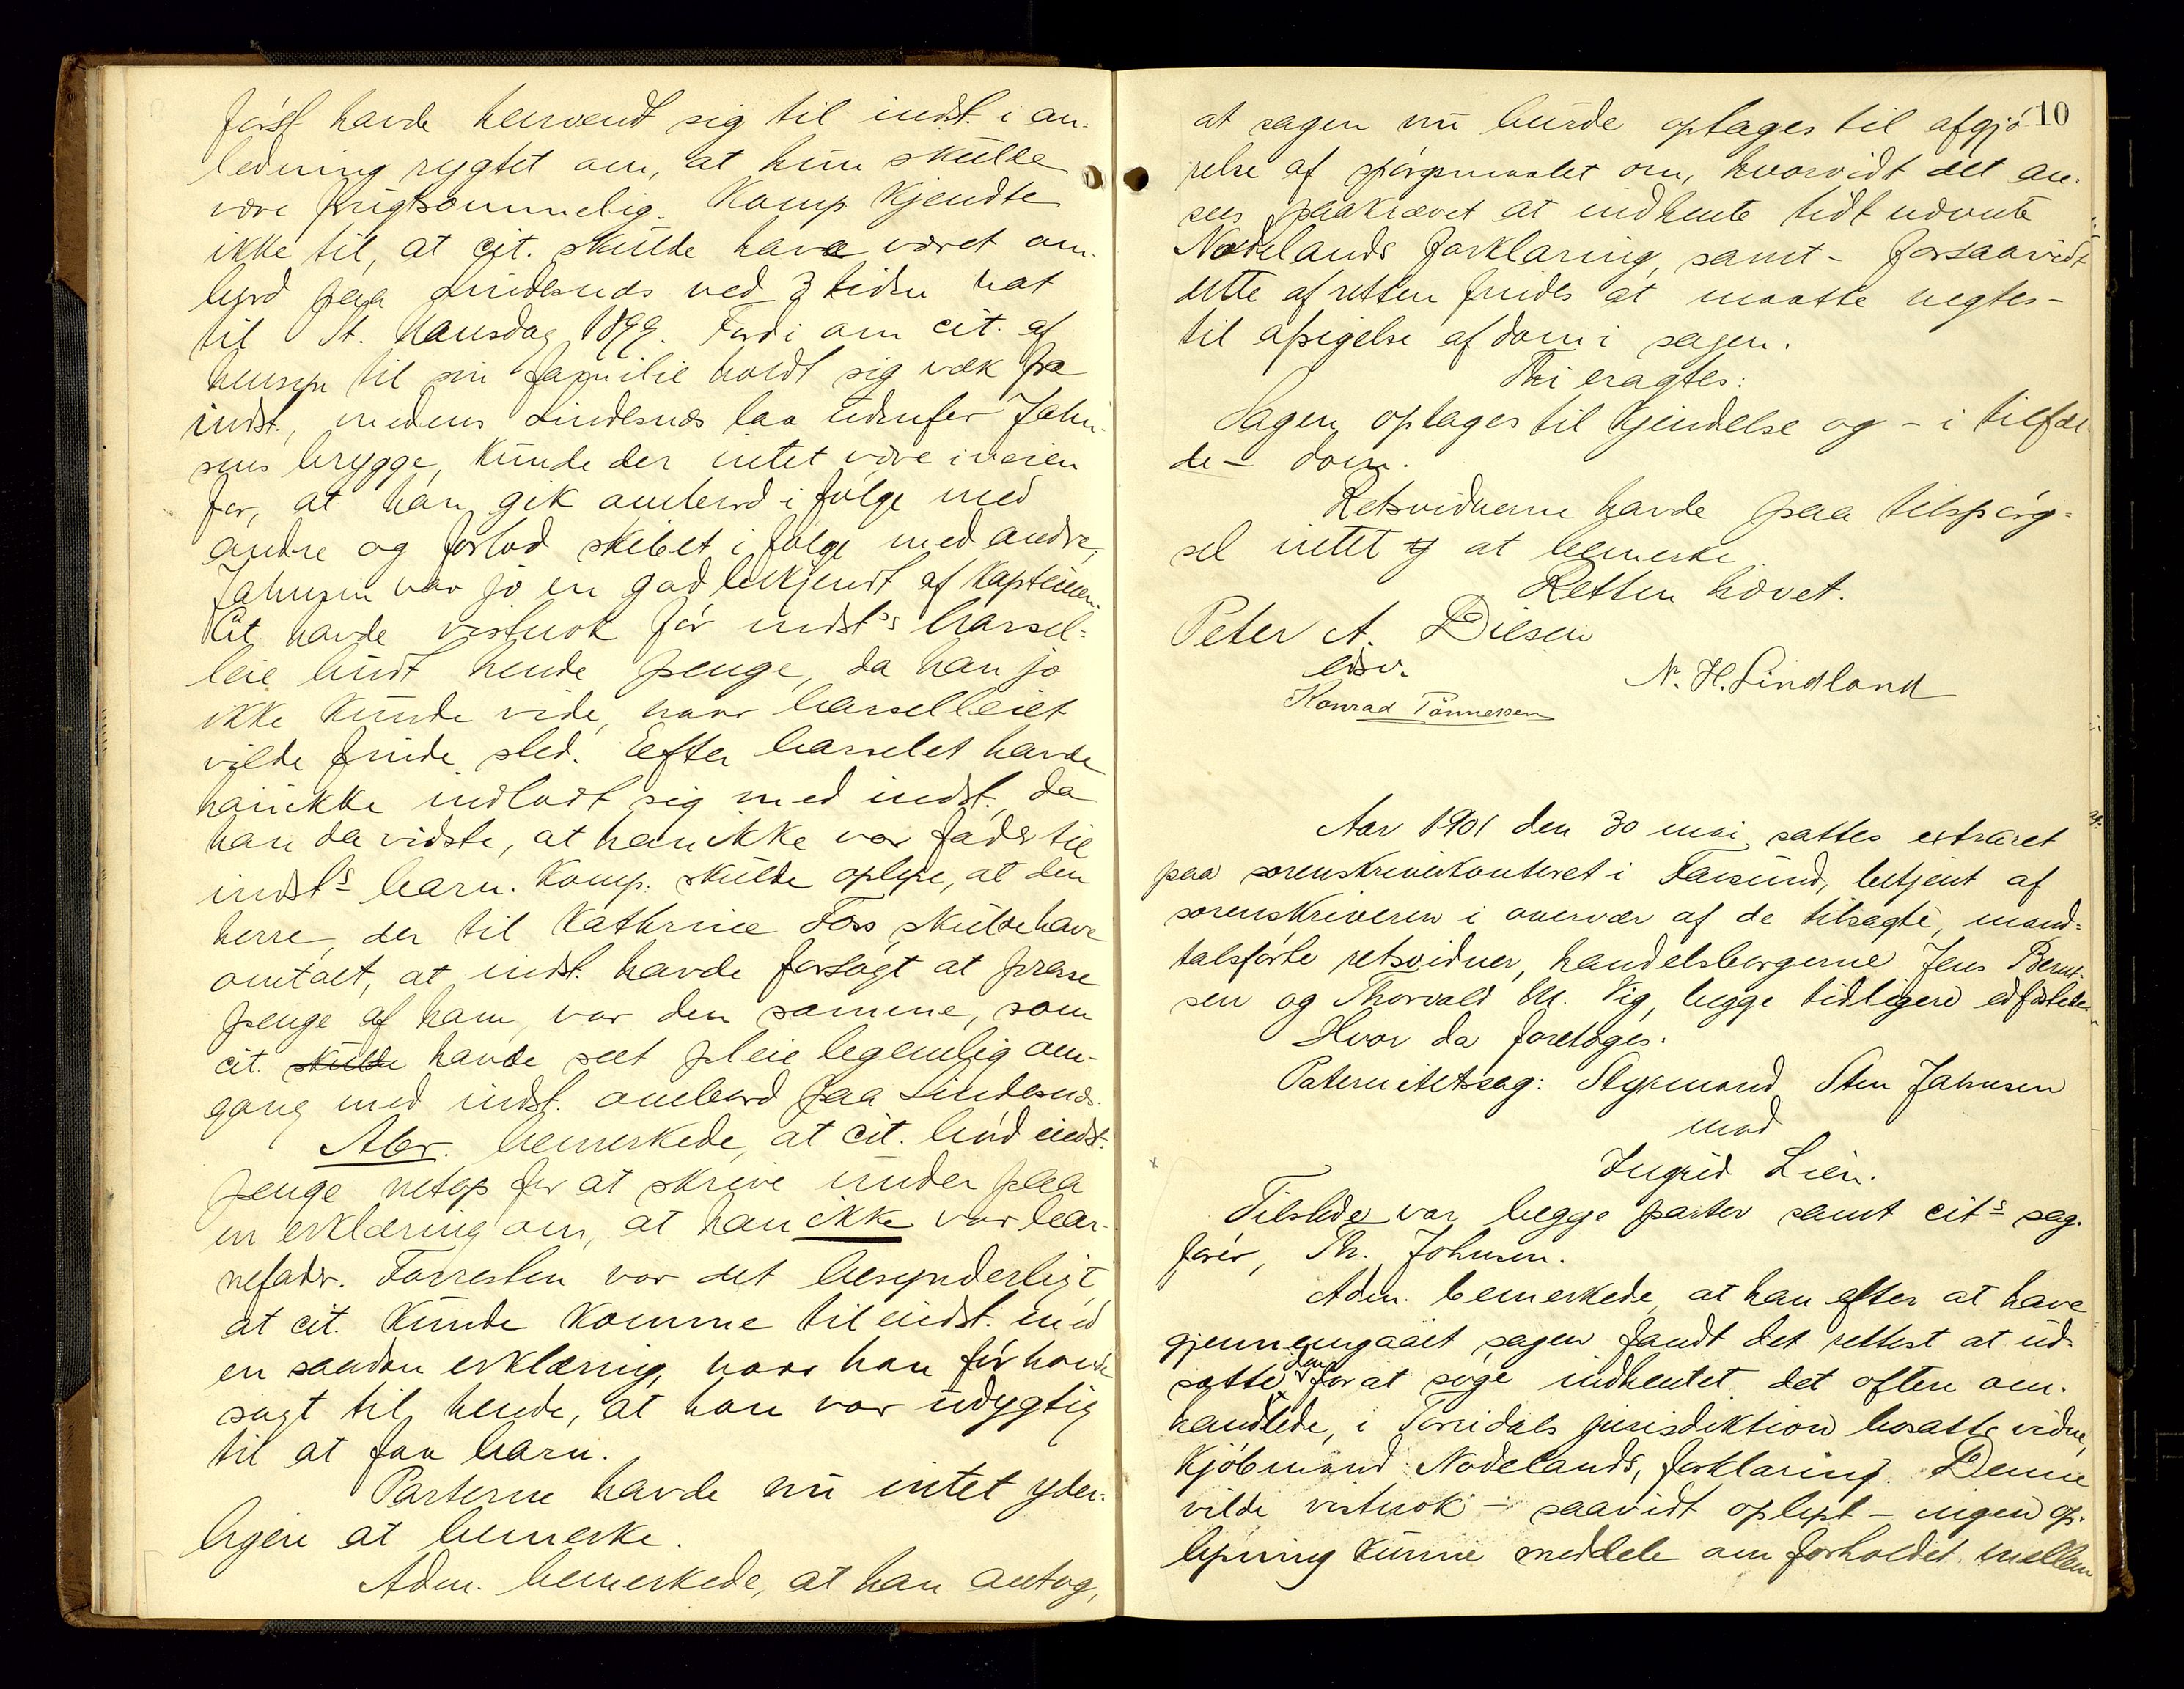 først havde henvendt sig til indst. i an-
ledning rygtet om, at hun skulde
være frugtsommelig. Komp. kjendte
ikke til, at cit. skulde have været om-
bord paa Lindesnæs ved 3 tiden nat
til St. Hansdag 1899. Fordi om cit. af
hensyn til sin familie holdt sig væk fra
indst., medens Lindesnæs laa udenfor Jahn-
sens brygge, kunde der intet være iveien
for, at han gik ombord i følge med
andre og forlod skibet i følge med andre;
Jahnsen var jo en god bekjendt af kapteinen.
Cit. havde vistnok før indst's barsel-
leie budt hende penge, da han jo
ikke kunde vide, naar barselleiet
vilde finde sted. Efter barselet havde
han ikke indladt sig med indst., da
han da vidste, at han ikke var fader til
indst's barn. Komp. skulde oplyse, at den
herre, der til Kathrine Foss skulde have
omtalt, at indst. havde forsøgt at presse
penge af ham, var den samme, som
cit. skulde havde seet pleie legemlig om-
gang med indst. ombord paa Lindesnæs.
Abr. bemerkede, at cit. bød indst.
penge netop for at skrive under paa
en erklæring om, at han ikke var bar-
nefader. Forresten var det besynderligt,
at cit. kunde komme til indst. med
en saadan erklæring, naar han før havde
sagt til hende, at han var udygtig
til at faa barn.
Parterne havde nu intet yder-
ligere at bemerke.
Adm. bemerkede, at han antog,
10
at sagen nu burde optages til afgjø-
relse af spørgsmaalet om, hvorvidt det an-
sees paakrævet at indhente tidt nævnte
Nodelands forklaring, samt - forsaavidt
dette af retten findes at maatte negtes -
til afsigelse af dom i sagen.
Thi eragtes:
Sagen optages til kjendelse og - i tilfæl-
de - dom.
Retsvidnerne havde paa tilspørg-
sel intet at bemerke.
Retten hævet.
Peter A. Diesen
edsv.
N. H. Lindland
Konrad Tönnessen
Aar 1901 den 30 mai sattes extraret
paa sorenskriverkontoret i Farsund, betjent af
sorenskriveren i overvær af de tilsagte, mand-
talsførte retsvidner, handelsborgerne Jens Bernt-
sen og Thorvald M. Vig, begge tidligere edfæstede.
Hvor da foretoges:
Paternitetssag: Styrmand Sten Jahnsen
mod
Ingrid Lien.
Tilstede var begge parter samt cit's sag-
fører, Th. Johnsen.
Adm. bemerkede, at han efter at have
gjennemgaaet sagen fandt det rettest at ud-
sætte den for at søge indhentet det oftere om-
handlede, i Torridals jurisdiktion bosatte vidne,
kjøbmand Nodelands, forklaring. Denne
vilde vistnok - saavidt oplyst - ingen op-
lysning kunne meddele om forholdet mellem